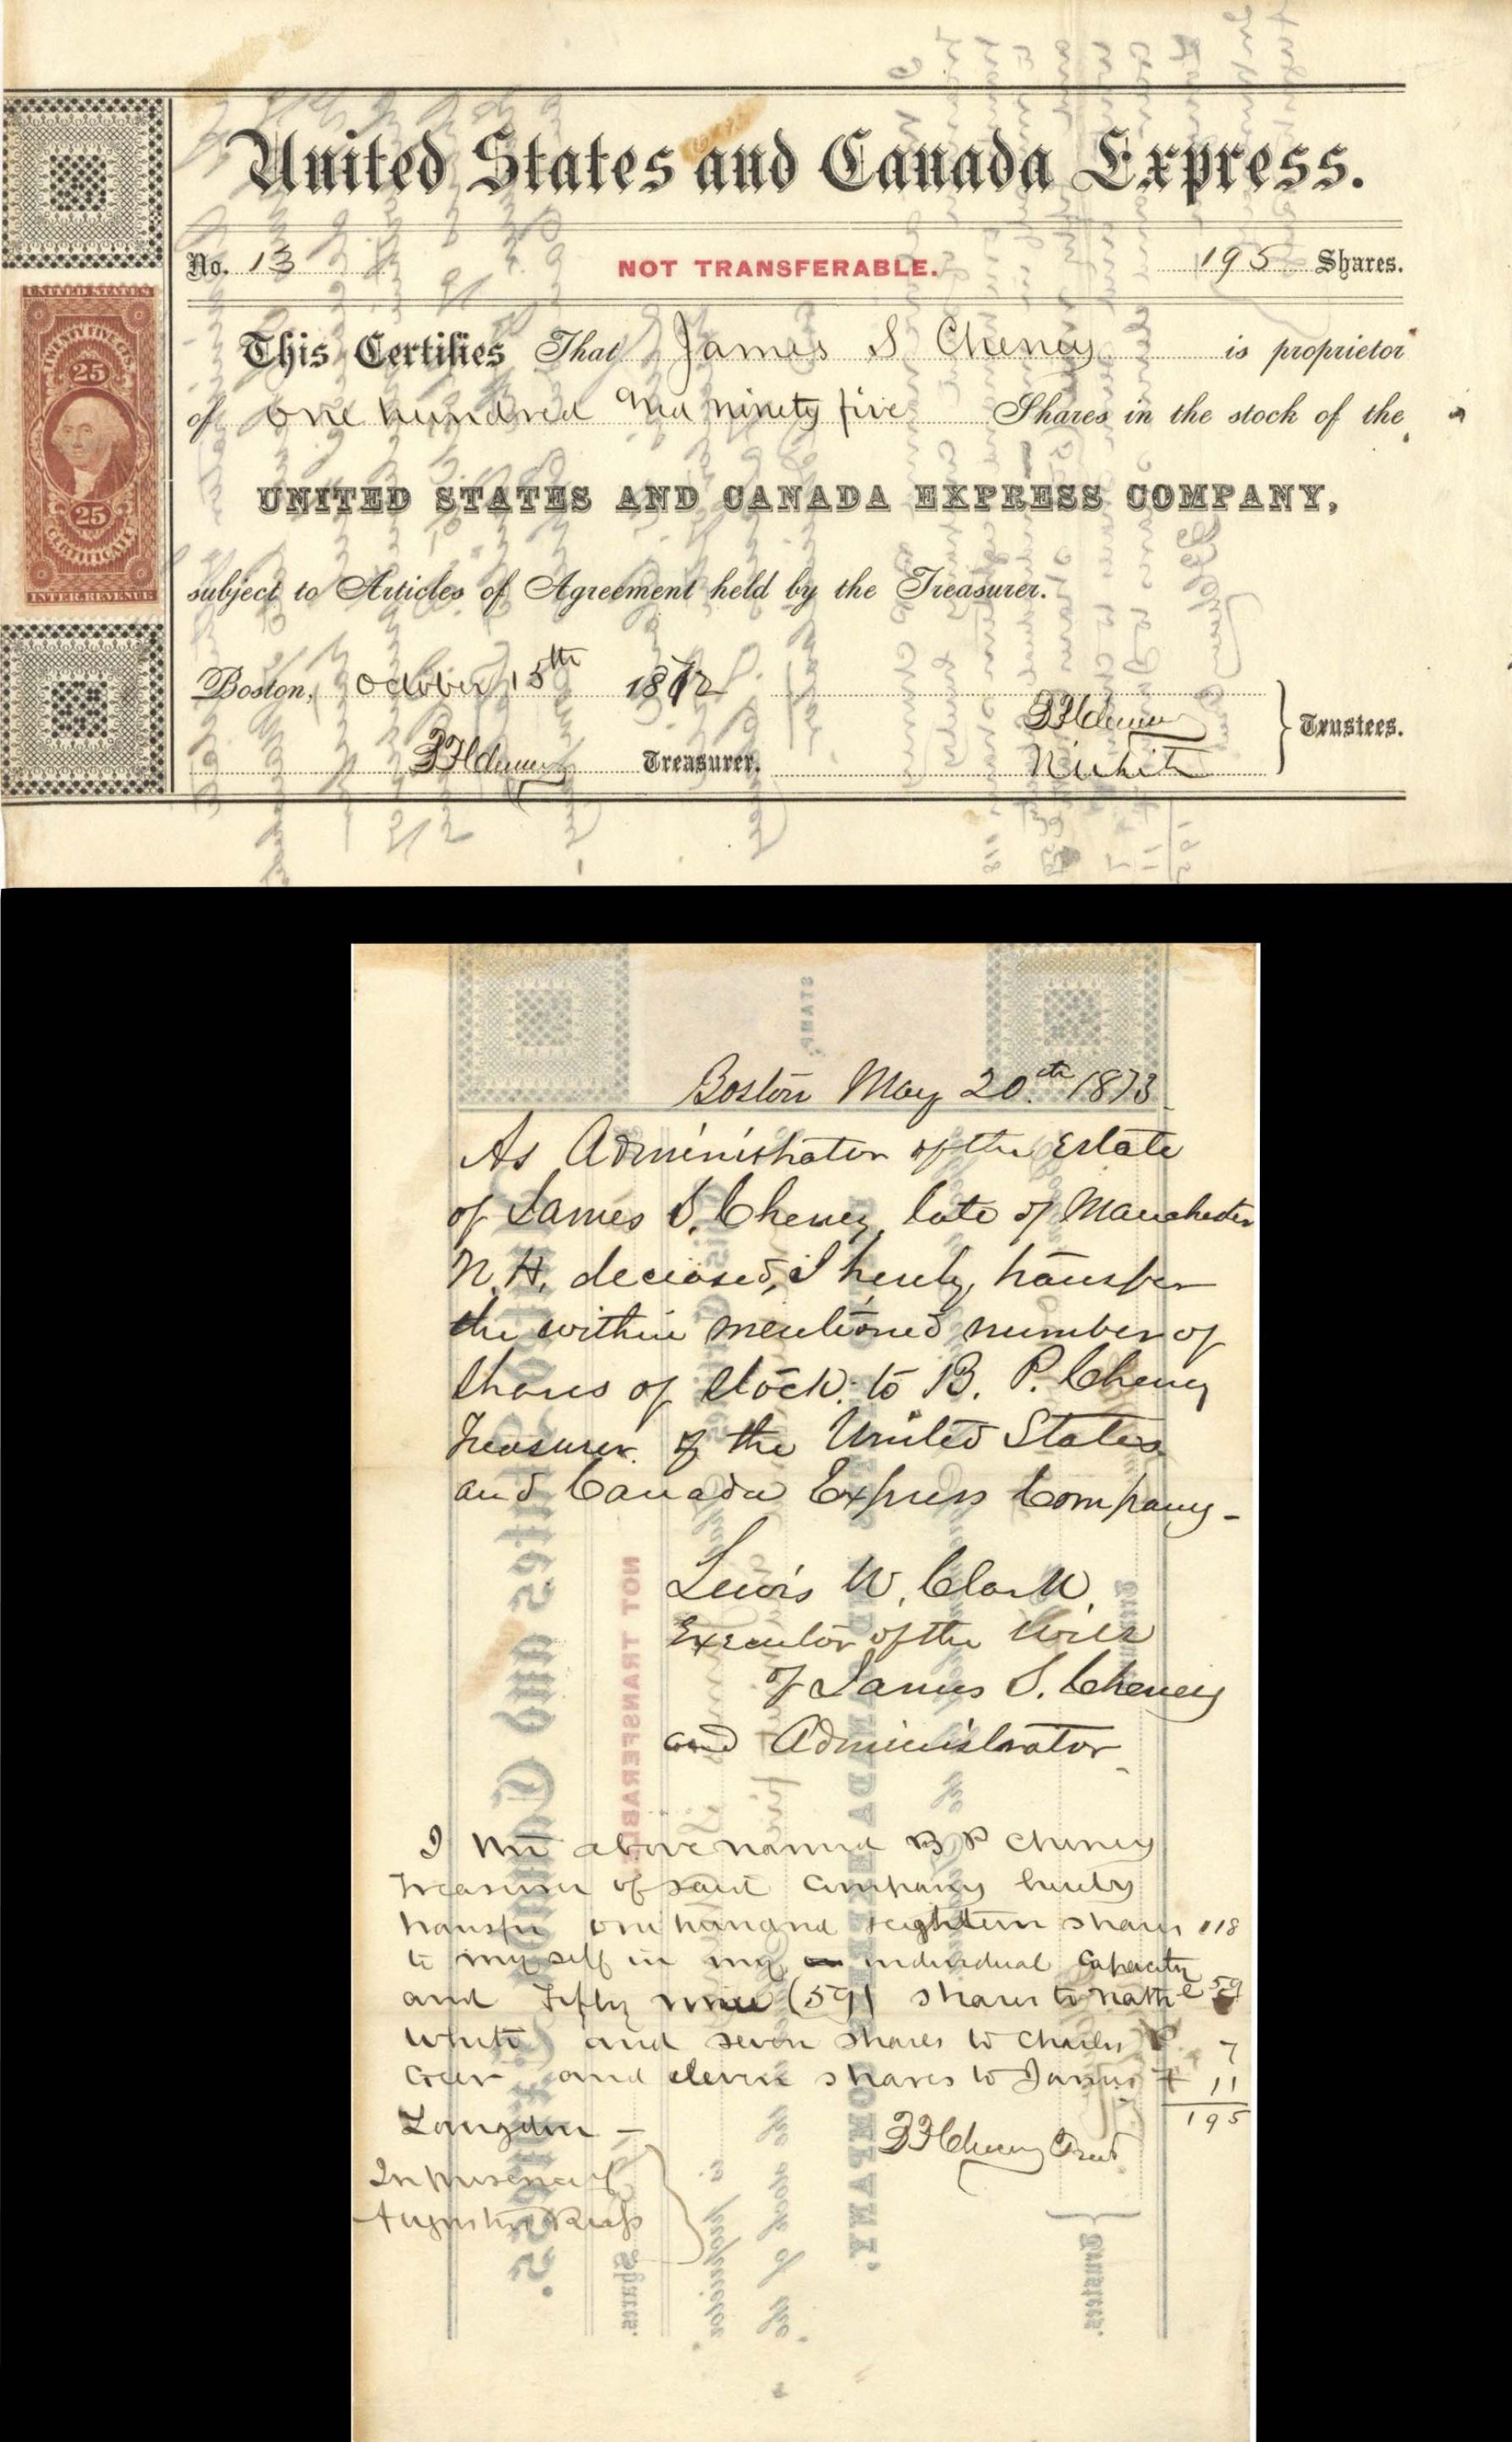 United States and Canada Express.
No. 13 NOT TRANSFERABLE. 195 Shares.
UNITED STATES
TWENTY FIVE CTS.
25
25
CERTIFICATE
INTER. REVENUE
This Certifies That James S Cheney is proprietor
of one hundred and ninety five Shares in the stock of the
UNITED STATES AND CANADA EXPRESS COMPANY,
subject to Articles of Agreement held by the Treasurer.
Boston, October 15th 1872
BPCheney Treasurer.
BPCheney
N White
Trustees.
STAMP.
Boston May 20.th 1873
As Administrator of the Estate
of James S. Cheney late of Manchester
N. H. deceased, I hereby transfer
the within mentioned number of
shares of stock to B. P. Cheney
Treasurer of the United States
and Canada Express Company -
Lewis W. Clark,
Executor of the Will
of James S. Cheney
and Administrator
I the above named B P Cheney
Treasurer of said Company hereby
transfer one hundred & eighteen shares 118
to myself in my individual capacity
and Fifty nine (59) shares to Nathl 59
White and seven shares to Charles 7
and eleven shares to James 11
Langdon - 195
BPCheney Treas
In presence of